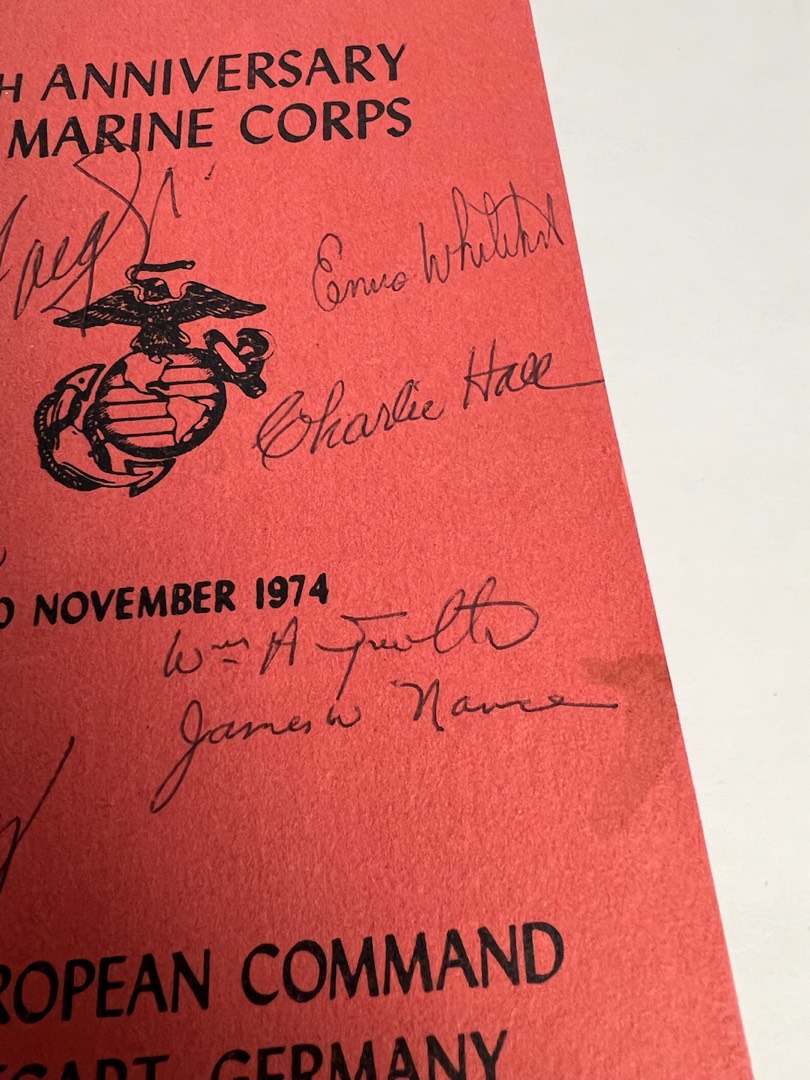 H ANNIVERSARY
MARINE CORPS
Haig Jr.
Ennis Whitehead
Charlie Hall
0 NOVEMBER 1974
Wm A
James W Nance
ROPEAN COMMAND
GART, GERMANY